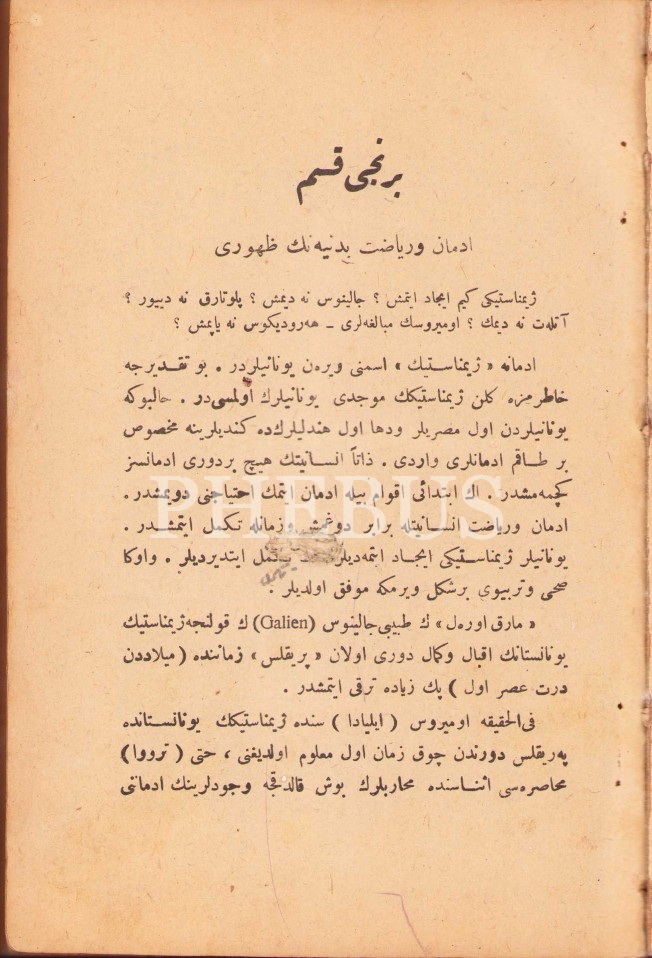 برنجی قسم
ادمان و ریاضت بدنیه نك ظهوری
ژیمناستیکی کیم ایجاد ایتمش ؟ جالینوس نه دیمش ؟ پلوتارق نه دییور ؟
آتله‌ت نه دیمك ؟ اومیروسك مبالغه‌لری ـ هه‌رودیکوس نه یاپمش ؟
ادمانه « ژیمناستیك » اسمنی ویره‌ن یونانیلردر . بو تقدیرجه
خاطرمزه کلن ژیمناستیکك موجدی یونانیلرك اولمسی‌در . حالبوکه
یونانیلردن اول مصریلر ودها اول هندلیلرك‌ده کندیلرینه مخصوص
بر طاقم ادمانلری واردی . ذاتاً انسانیتك هیچ بردوری ادمانسز
کچمه‌مشدر . اك ابتدائی اقوام بیله ادمان ایتمك احتیاجنی دویمشدر .
ادمان وریاضت انسانیتله برابر دوغمش وزمانله تکمل ایتمشدر .
یونانیلر ژیمناستیکی ایجاد ایتمه‌دیلر تکمل ایتدیردیلر . واوکا
صحی وتربیوی برشکل ویرمکه موفق اولدیلر .
« مارق اوره‌ل » ك طبیبی جالینوس (Galien) ك قولنجه ژیمناستیك
یونانستانك اقبال وکمال دوری اولان « پریقلس » زماننده ( میلاددن
درت عصر اول ) پك زیاده ترقی ایتمشدر .
فی‌الحقیقه اومیروس ( ایلیادا ) سنده ژیمناستیکك یونانستانده
په‌ریقلس دورندن چوق زمان اول معلوم اولدیغنی ، حتی ( ترووا )
محاصره‌سی اثناسنده محاربلرك بوش قالدقجه وجودلرینك ادماننی
PHEBUS